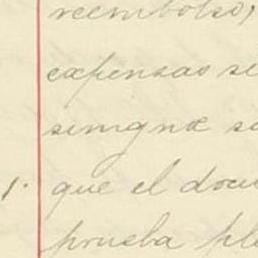 reembolso,
expensas se
semgnœ so
1. que el docu
prueba pla